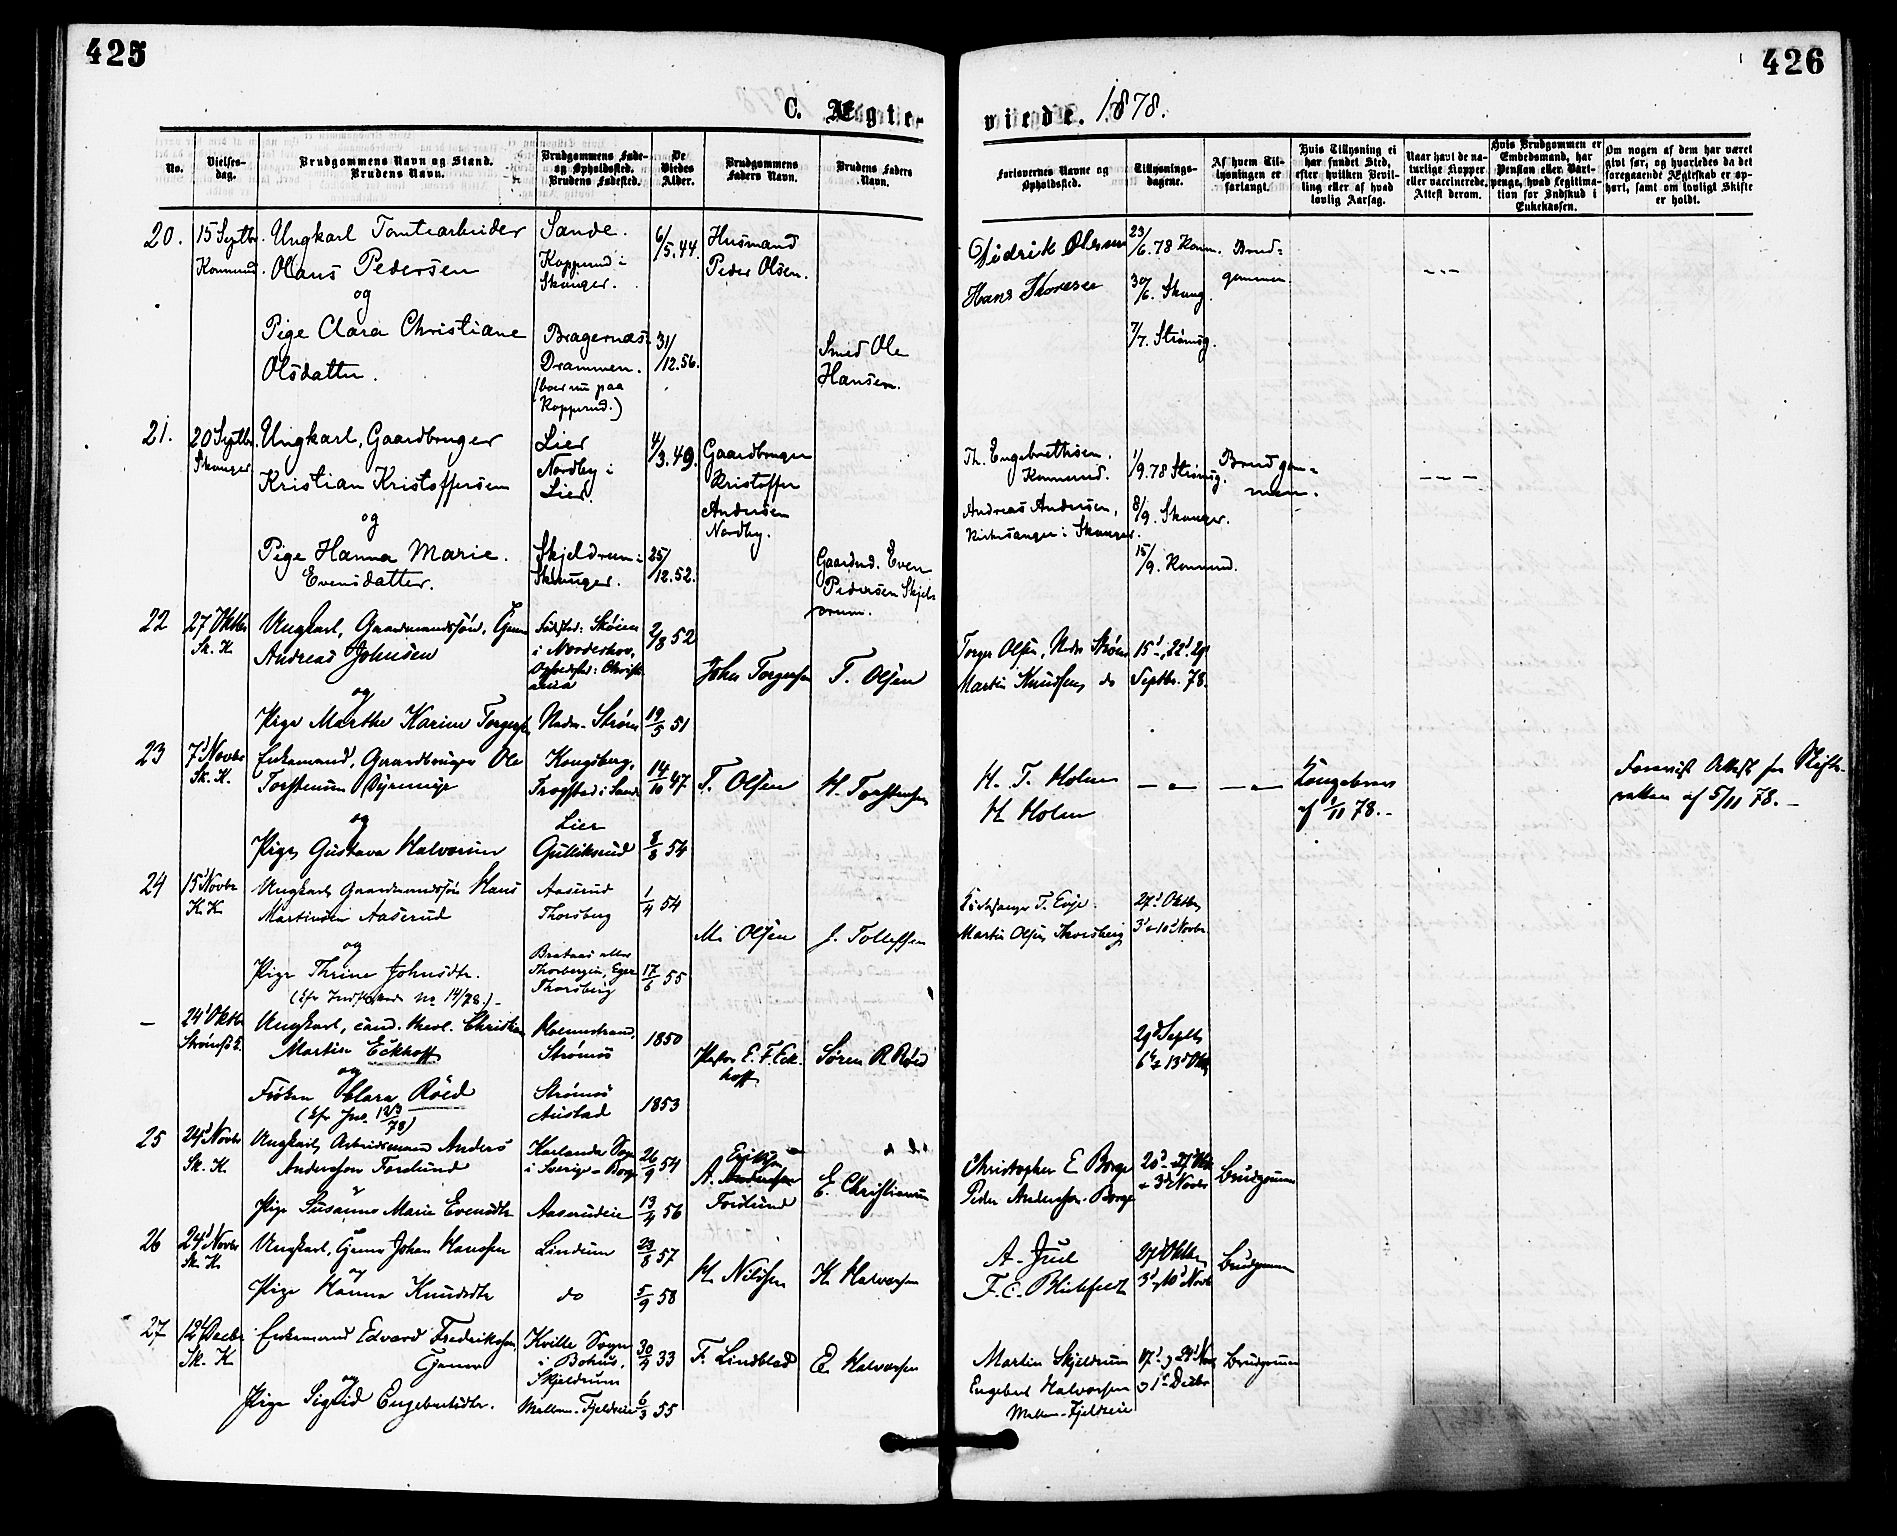 425
426
C. Ægte-
viede. 1878.
No.
Vielses-
dag.
Brudgommens Navn og Stand.
Brudens Navn.
Brudgommens Føde-
og Opholdssted.
Brudens Fødested.
De
Viedes
Alder.
Brudgommens
Faders Navn.
Brudens Faders
Navn.
Forlovernes Navne og
Opholdssted.
Tillysnings-
dagene.
Af hvem Til-
lysningen er
forlangt.
Hvis Tillysning ei
har fundet Sted,
efter hvilken Bevil-
ling eller af hvad
lovlig Aarsag.
Naar havt de na-
turlige Kopper
eller vaccinerede,
Attest derom.
Hvis Brudgommen er
Embedsmand, har
Pension eller Vart-
penge, hvad Legitima-
tion for Indskud i
Enkekassen.
Om nogen af dem har været
givt før, og hvorledes da det
foregaaende Ægteskab er op-
hørt, samt om lovligt Skifte
er holdt.
20.
15 Septbr.
Konnerud.
Ungkarl Tomtearbeider
Olaus Pedersen
og
Pige Clara Christiane
Olsdatter.
Sande.
Kopperud i
Skouger.
Bragernæs
Drammen.
(bor nu paa
Kopperud.)
6/5.44.
31/12.56.
Husmand
Peder Olsen.
Smed Ole
Hansen.
Didrik Olsen
Hans Thoresen
23/6.78 Konn.
30/6. Skoug.
7/7. Strømsg.
Brud-
gommen
21.
20 Septbr.
Skouger
Ungkarl, Gaardbruger
Kristian Kristoffersen
og
Pige Hanna Marie
Evensdatter.
Lier
Nordby i
Lier.
Skjeldrum i
Skouger.
4/3.49.
25/12.52.
Gaardbruger
Kristoffer
Andersen
Nordby.
Gaardbr. Even
Pedersen Skjel-
drum.
Th. Engebrethsen,
Konnerud.
Andreas Andersen,
Kirkesanger i Skouger.
1/9.78 Strømsg.
8/9. Skouger.
15/9. Konnerud.
Brudgom-
men.
22
27 Oktbr
Sk. K.
Ungkarl, Gaardmandssøn,
Andreas Johnsen
og
Pige Marthe Karine Torgersdtr
Fødested: Skøien
i Nordeskov,
Opholdsted: Christi-
ania
Nedre-Strøm
2/8 52
19/5 51
Johs Torgersen
T. Olsen
Torger Olsen, Nedre Strøm
Martin Knudsen do
15d, 22d, 29
Septbr. 78.
23
7d Novbr
Sk. K.
Enkemand, Gaardbruger Ole
Torstensen
og
Pige Gustava Halvorsen
Kongsberg,
Frogstad i Sande
Lier
Gulliksrud
14/10 47
8/8 54
T. Olsen
H. Torstensen
H. T. Holm
H Holm
Kongebrev
af 1/11 78.-
Forevist Attest fra Skifte-
retten af 5/11 78.-
24
15d Novbr
K. K.
Ungkarl, Gaardmandssøn Hans
Martinsen Aaserud
og
Pige Thrine Johnsdtr.
Aaserud
Thorsberg
Thorsberg
1/4 54
17/6 55
M. Olsen
J. Tollefsen
Kirkesanger T. Evje
Martin Olsen Thorsberg
27d Oktbr
3d & 10d Novbr
-
24d Oktbr
Ungkarl, cand. theol. Christian
Martin Eckhoff
og
Frøken Clara Röed
Holmestrand,
Strømsø
Strømsø
Austad
1850
1853
Pastor E. F. Eck-
hoff
Søren R Röed
29d Septbr
6d & 13d Okt
25
24d Novbr
Sk. K.
Ungkarl, Arbeidsmand Anders
Andersson Forslund
Pige Susanne Marie Evensdtr
Karlanda Sogn
i Sverige - Borge
Aaserudeie
26/9 54
13/4 56
A.
Forslund
E. Christiansen
Christopher E Borge
Peder Andersen Borge
20d - 27d Okt
& 3d Novbr
Brudgommen
26
24d Novbr
Sk. K.
Ungkarl, Johan Hansen
og
Pige Hanna Knudsdtr
Lindum
do
23/8 57
5/9 58
H. Nilsen
K. Halvorsen
A. Juel
F. C. Blichfeldt
27d Oktbr
3d & 10d Novbr
Brudgommen
27
12d Decbr
Sk. K.
Enkemand Edvard Fredriksen
og
Pige Sigrid Engebretsdtr.
Kville Sogn
i Bohus,
Skjeldrum
Mellem-Fjeldseie
30/4 33
6/3 55
F. Lindblad
E. Halvorsen
Martin Skjeldrum
Engebret Halvorsen
Mellem-Fjeldseie
17d, 24d Nov
& 1d Decbr
Brudgommen